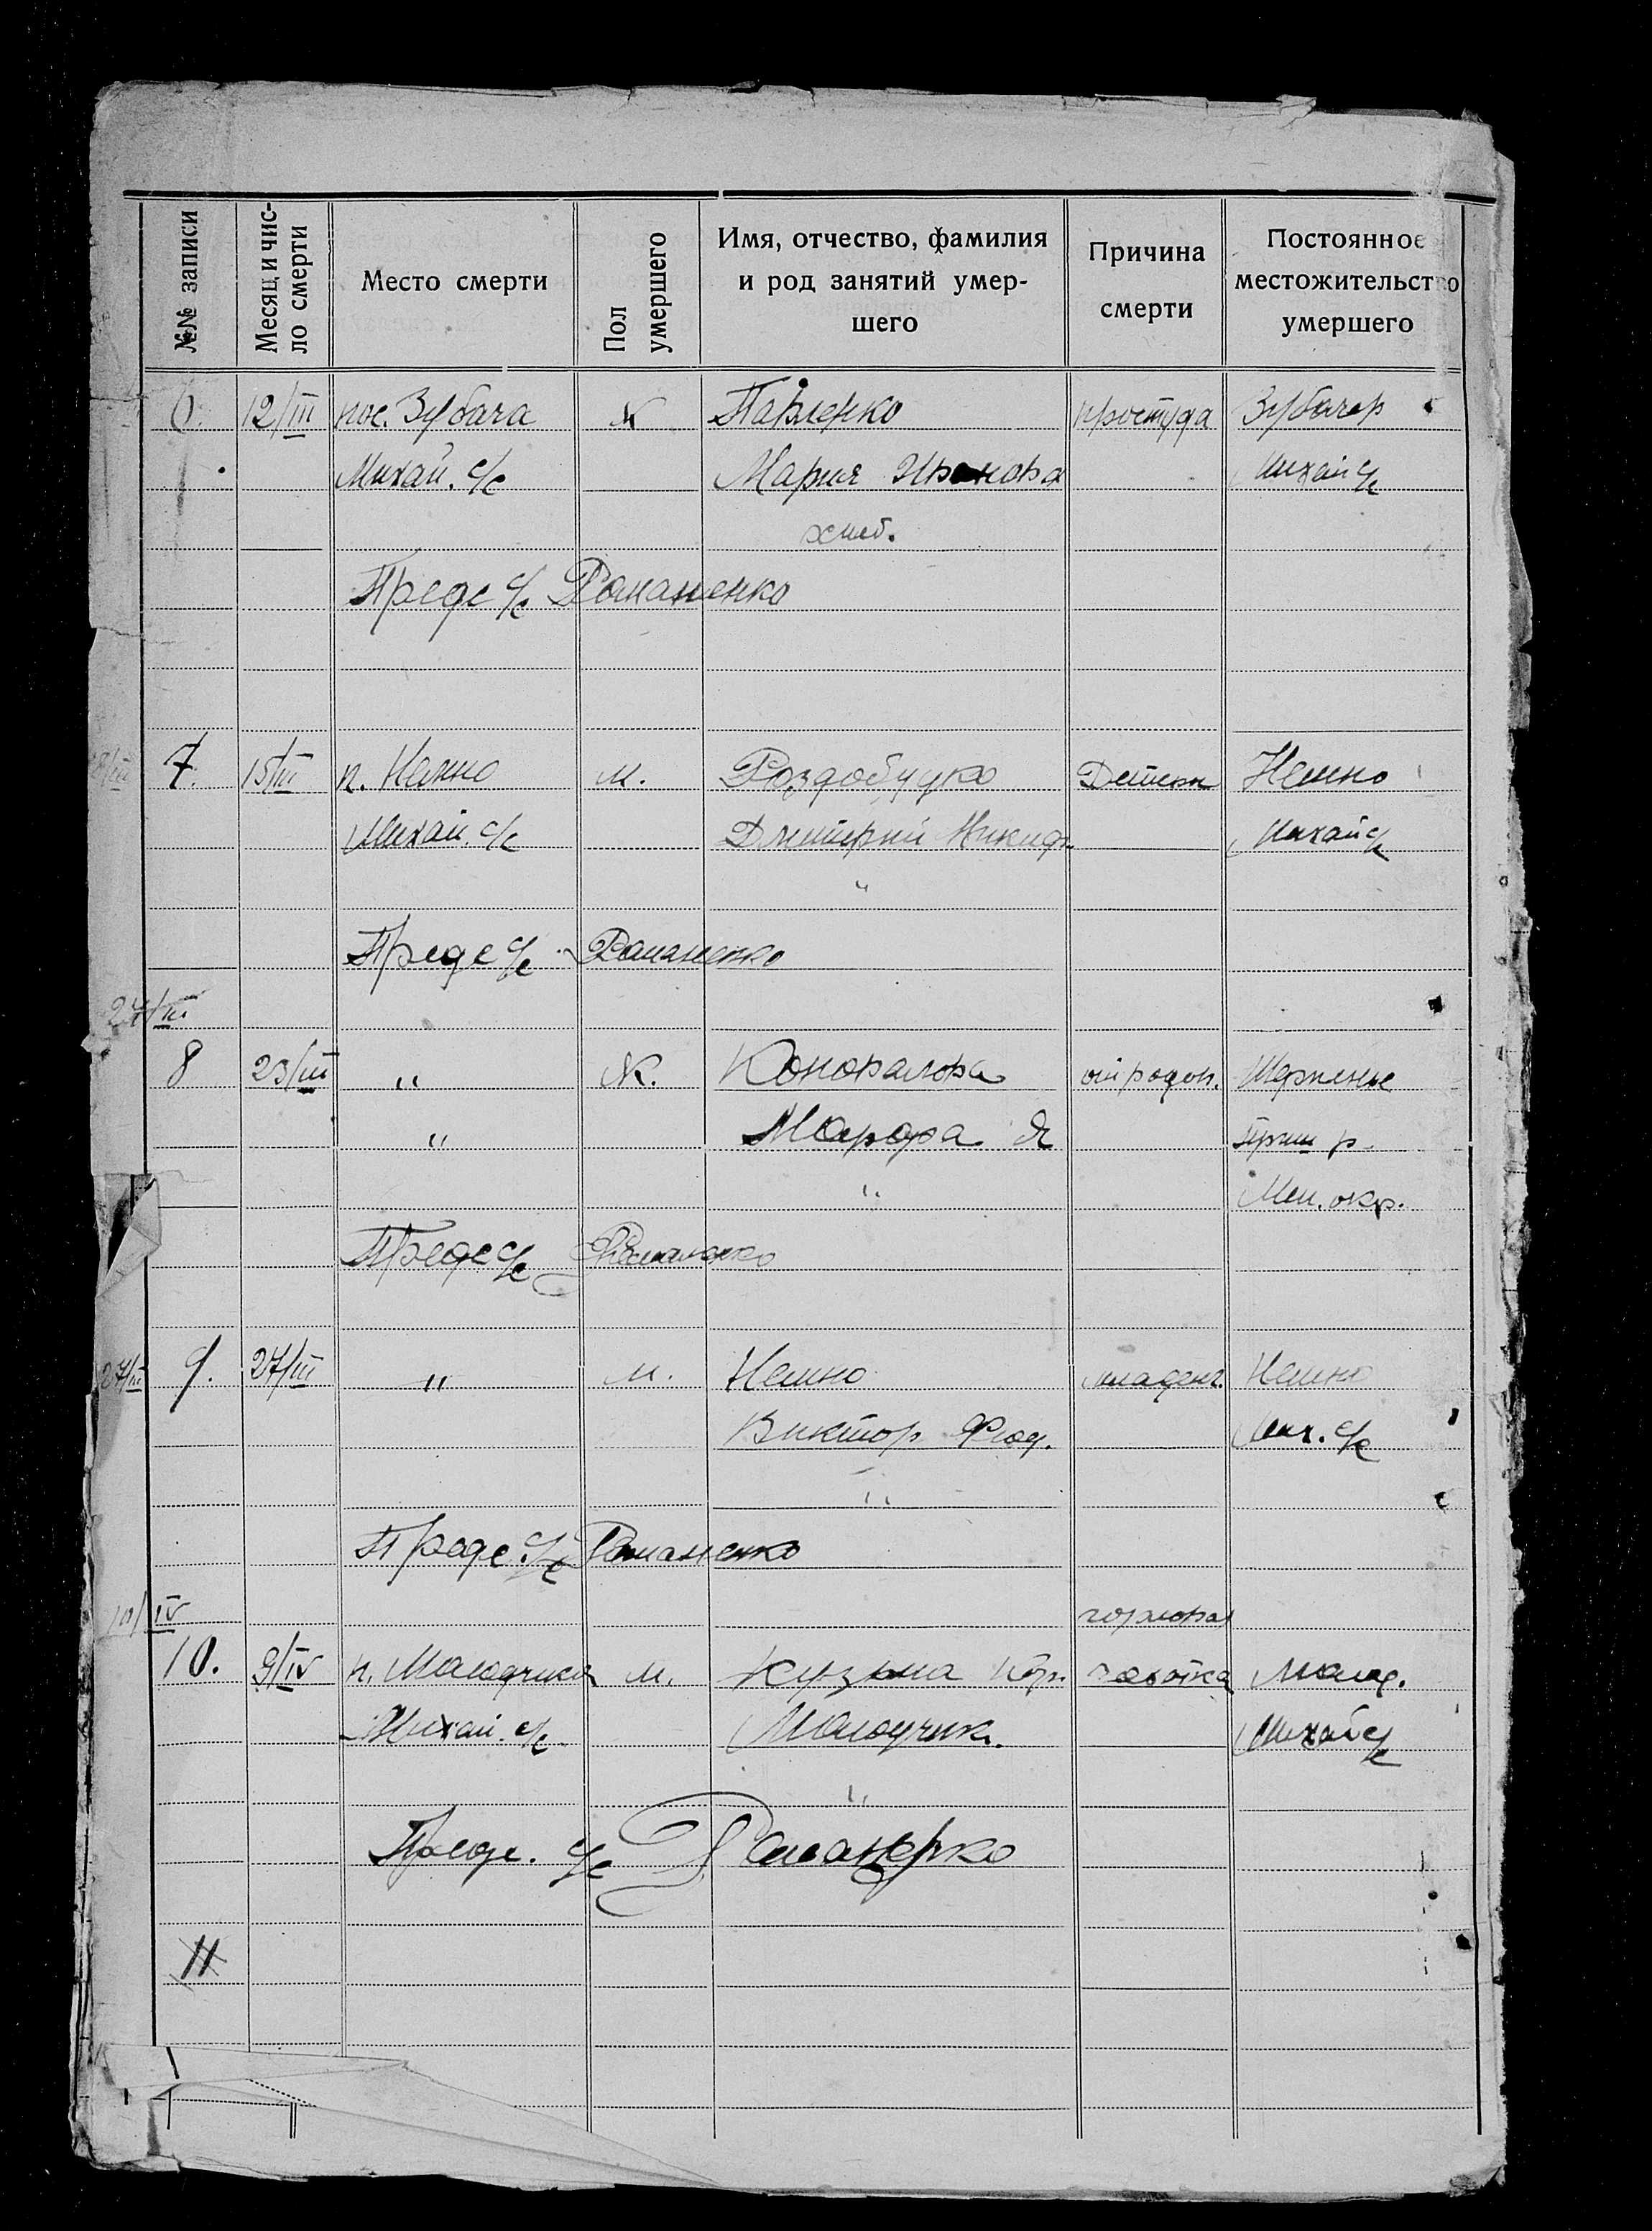 №№ записи
Месяц и чис-
ло смерти
Место смерти
Пол
умершего
Имя, отчество, фамилия
и род занятий умер-
шего
Причина
смерти
Постоянное
местожительство
умершего
6. 12/III пос. Зубача ж Павленко простуда Зубачер
Михай. с/с Мария Иванова Михай с/с
хлеб.
Предс с/с Романенко
7. 15/III п. Немно м. Роздобудко Детск Немно
Михай. с/с Дмитрий Никиф. Михай с/с
"
Предс с/с Романенко
27/III
8 23/III " ж. Коновалова от родов.
" Марфа Я р.
" Мел. окр.
Предс с/с Романенко
27/III 9. 27/III " м. Немно младенч. Немно
Виктор Фед. Мих. с/с
"
Предс. с/с Романенко
10/IV
10. 9/IV п. Молодчика м. Кузьма чахотка Молод.
Михай. с/с Молодчик. Михай с/с
"
Предс. с/с Романенко
11